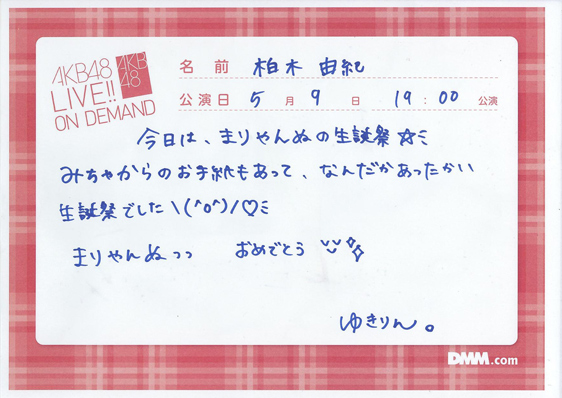 AKB48
LIVE!!
ON DEMAND
AKB
48
名 前 柏木 由紀
公演日 5 月 9 日 19:00 公演
今日は、まりやんぬの生誕祭☆ミ
みちゃからのお手紙もあって、なんだかあったかい
生誕祭でした\(^o^)/♡ミ
まりやんぬっっ おめでとう
ゆきりん。
DMM.com